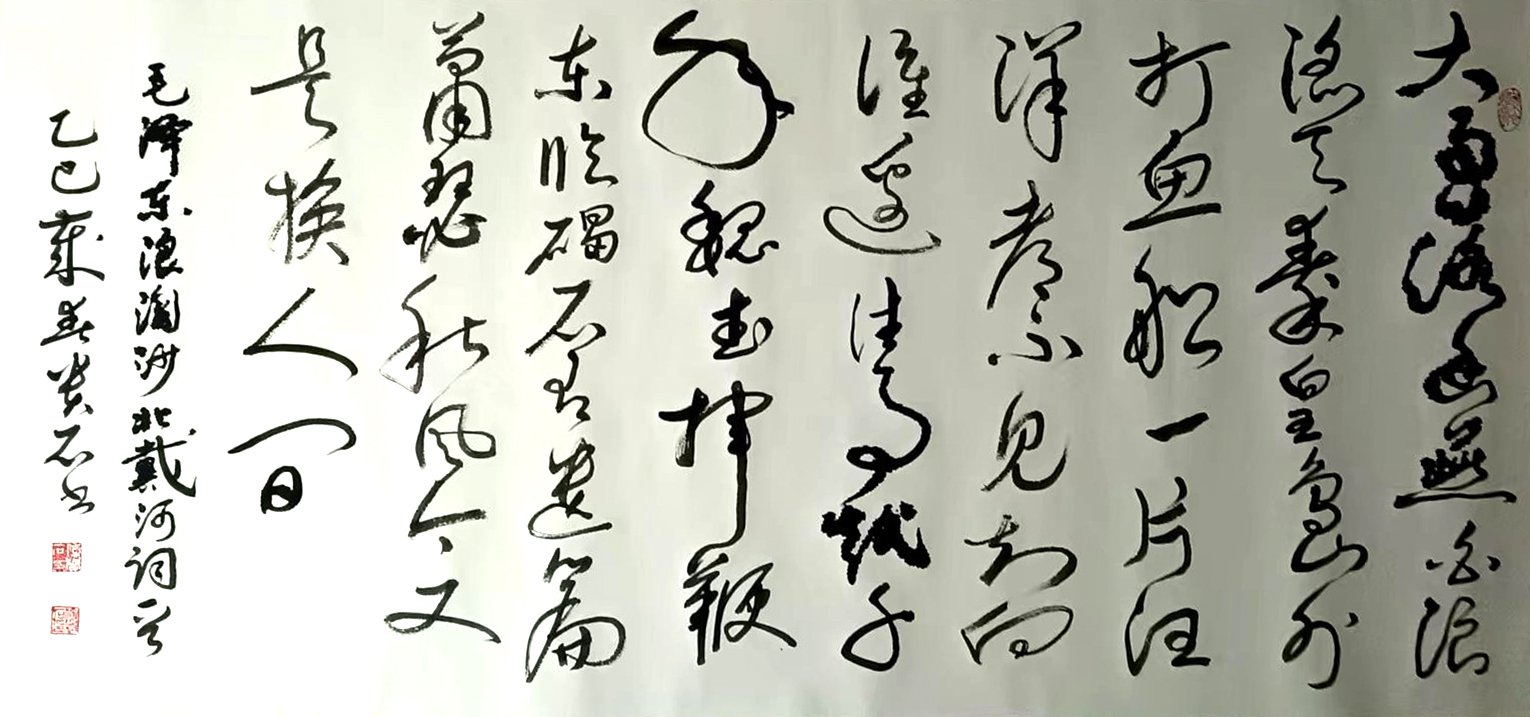 大雨落幽燕白浪
滔天秦皇島外
打鱼船一片汪
洋都不见知向
谁边往事越千
年魏武挥鞭
东临碣石有遗篇
萧瑟秋风今又
是换人间
毛泽东浪淘沙北戴河词一首
乙巳岁春石书